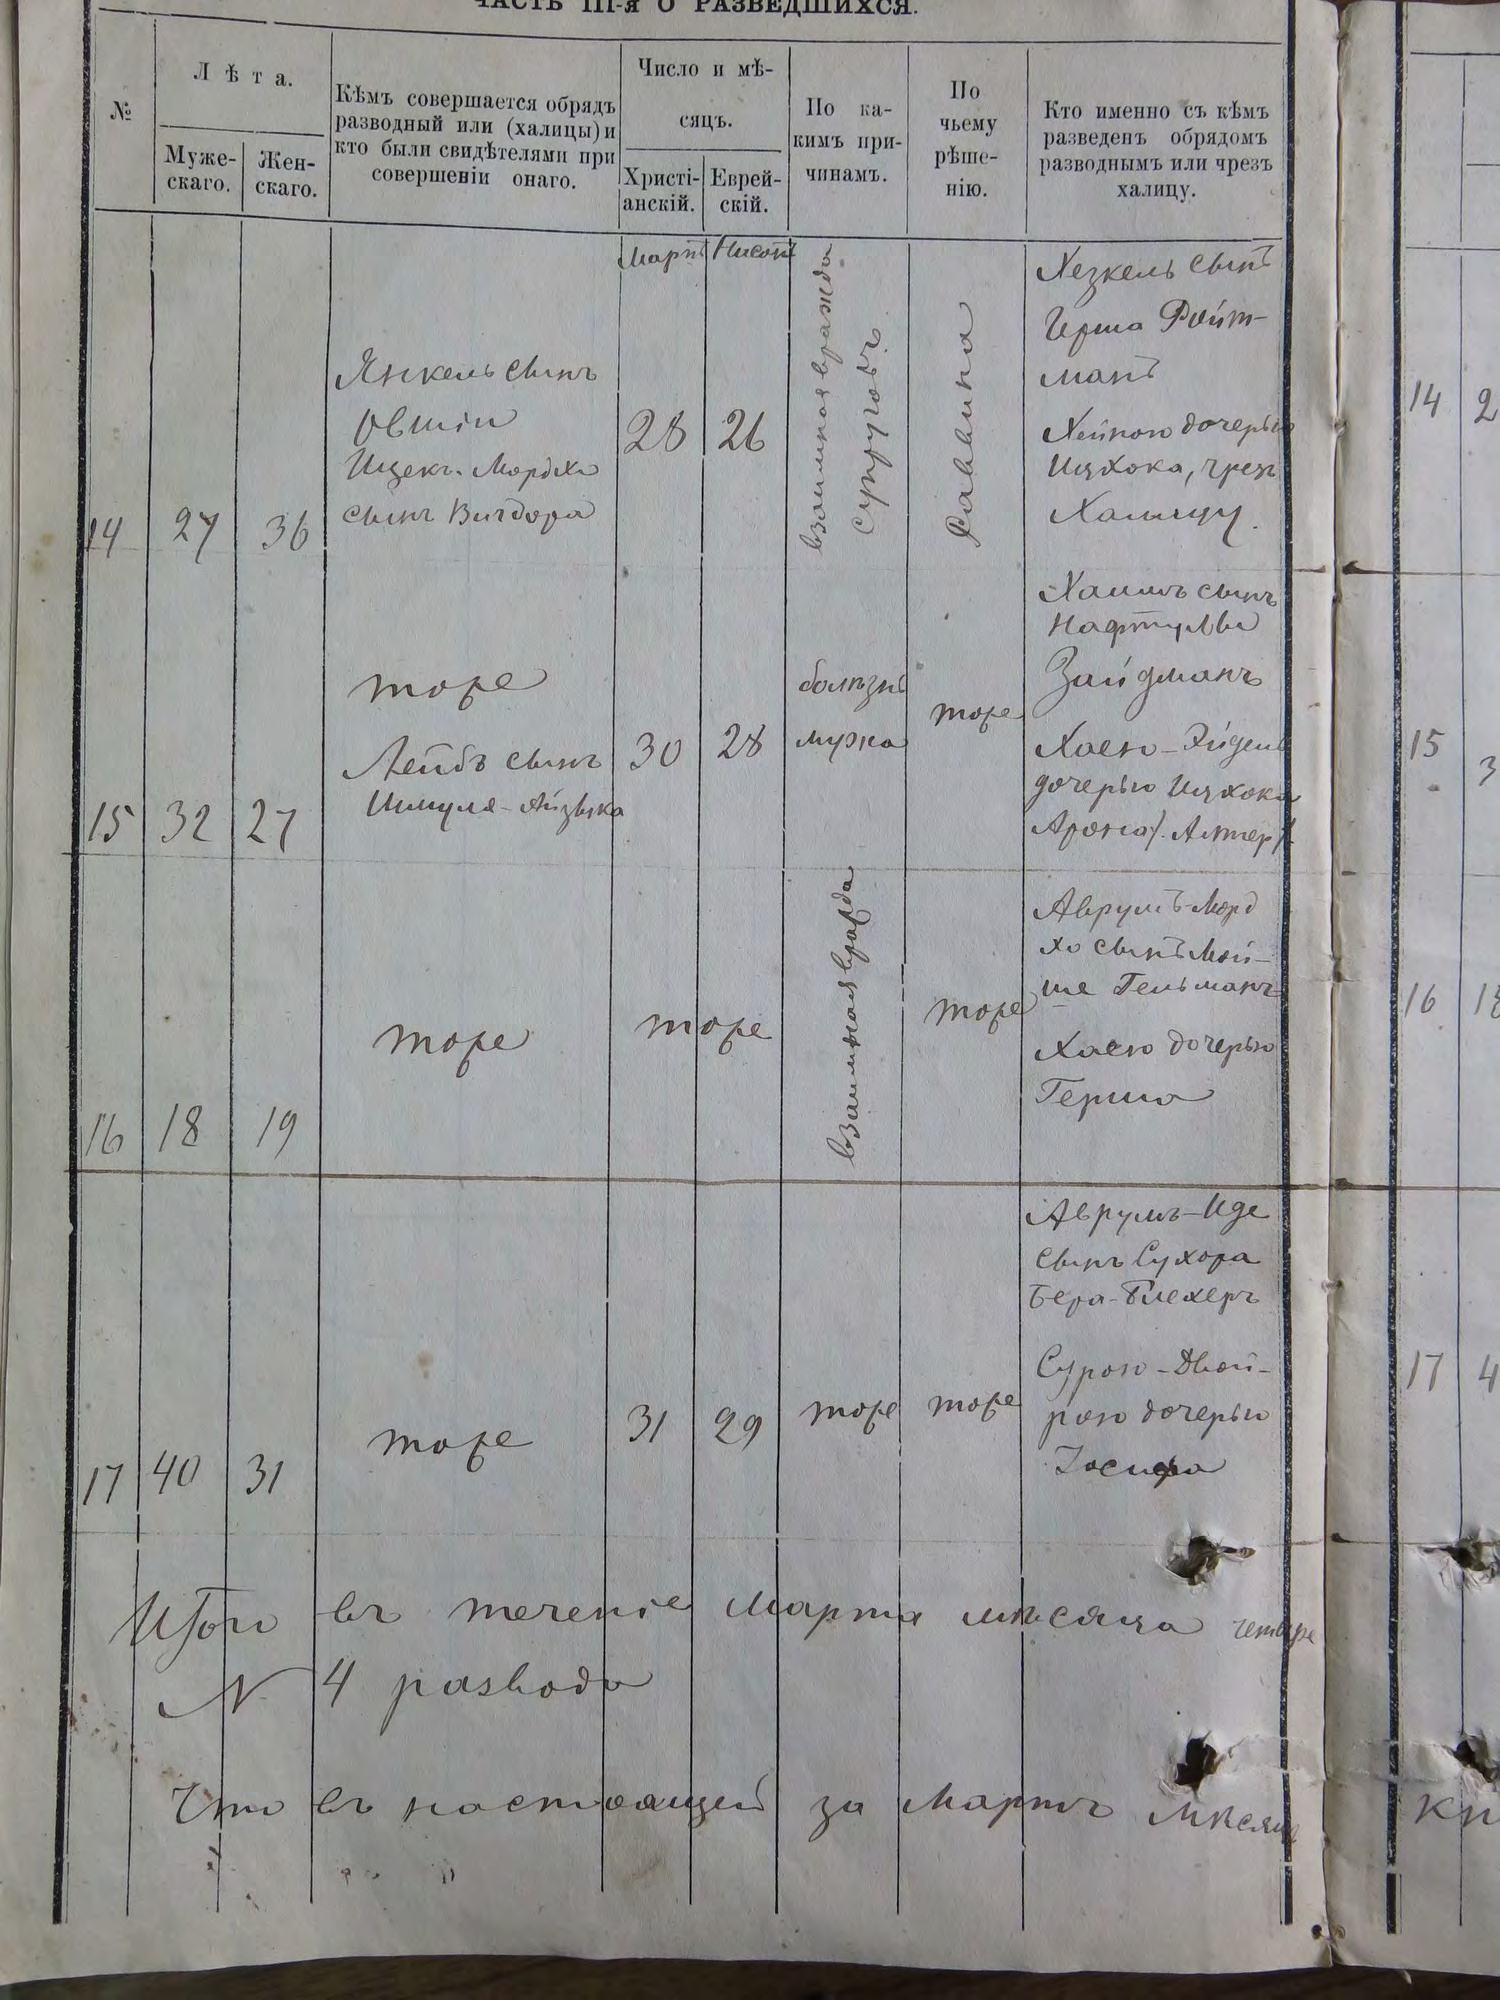 ЧАСТЬ III-я О РАЗВЕДШИХСЯ.
№
Лѣта.
Муже-
скаго.
Жен-
скаго.
Кѣмъ совершается обрядъ
разводный или (халицы) и
кто были свидѣтелями при
совершеніи онаго.
Число и мѣ-
сяцъ.
Христі-
анскій.
Еврей-
скій.
По ка-
кимъ при-
чинамъ.
По
чьему
рѣше-
нію.
Кто именно съ кѣмъ
разведенъ обрядомъ
разводнымъ или чрезъ
халицу.
14
27
36
Янкель сынъ
Овшіи
Ицекъ-Мордхо
сынъ Вигдора
Мартъ
28
Нисонъ
26
взаимная вражда
супруговъ
Раввина
Хезкель сынъ
Герша Ройт-
манъ
Хейкою дочерью
Ицхока, чрезъ
Халицу.
15
32
27
тоже
Лейбъ сынъ
Шмуля-Айзыка
30
28
болѣзнь
мужа
тоже
Хаимъ сынъ
Нафтулы
Зайдманъ
Хаею-Эйдель
дочерью Ицхока
Арона /Алтер/
16
18
19
тоже
тоже
взаимная вражда
тоже
Аврумъ-Морд
хо сынъ Мой-
ше Гельманъ
Хаею дочерью
Герша
17
40
31
тоже
31
29
тоже
тоже
Аврумъ-Иде
сынъ Сухора
Бера-Блехеръ
Сурою-Двой-
рою дочерью
Іосифа
Итого въ теченіе Марта мѣсяца четыре
N 4 развода
Что въ настоящей за Мартъ мѣсяцъ
14 2
15 3
16 18
17 4
кн